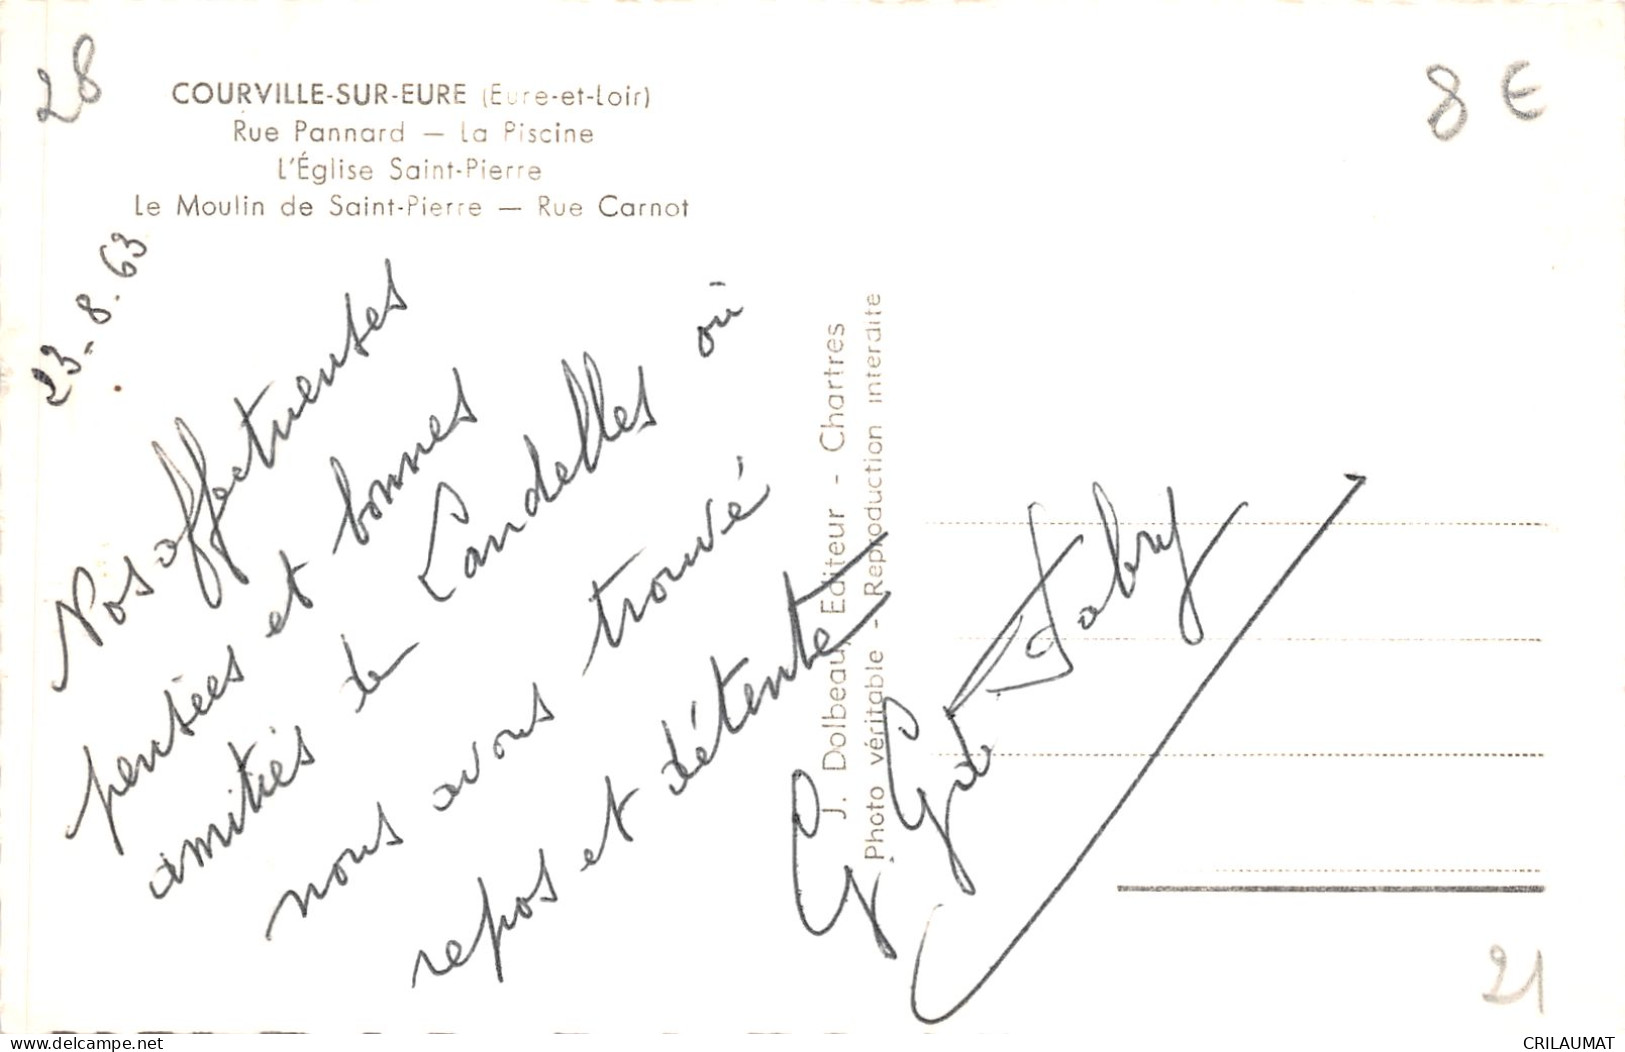 28
8 €
COURVILLE-SUR-EURE (Eure-et-Loir)
Rue Pannard — La Piscine
L'Église Saint-Pierre
Le Moulin de Saint-Pierre — Rue Carnot
23-8.63
Nos affectueuses
pensées et bonnes
amitiés de Landelles où
nous avons trouvé
repos et détente
G Fabry
J. Dolbeau, Editeur - Chartres
Photo véritable - Reproduction interdite
21
delcampe.net
CRILAUMAT